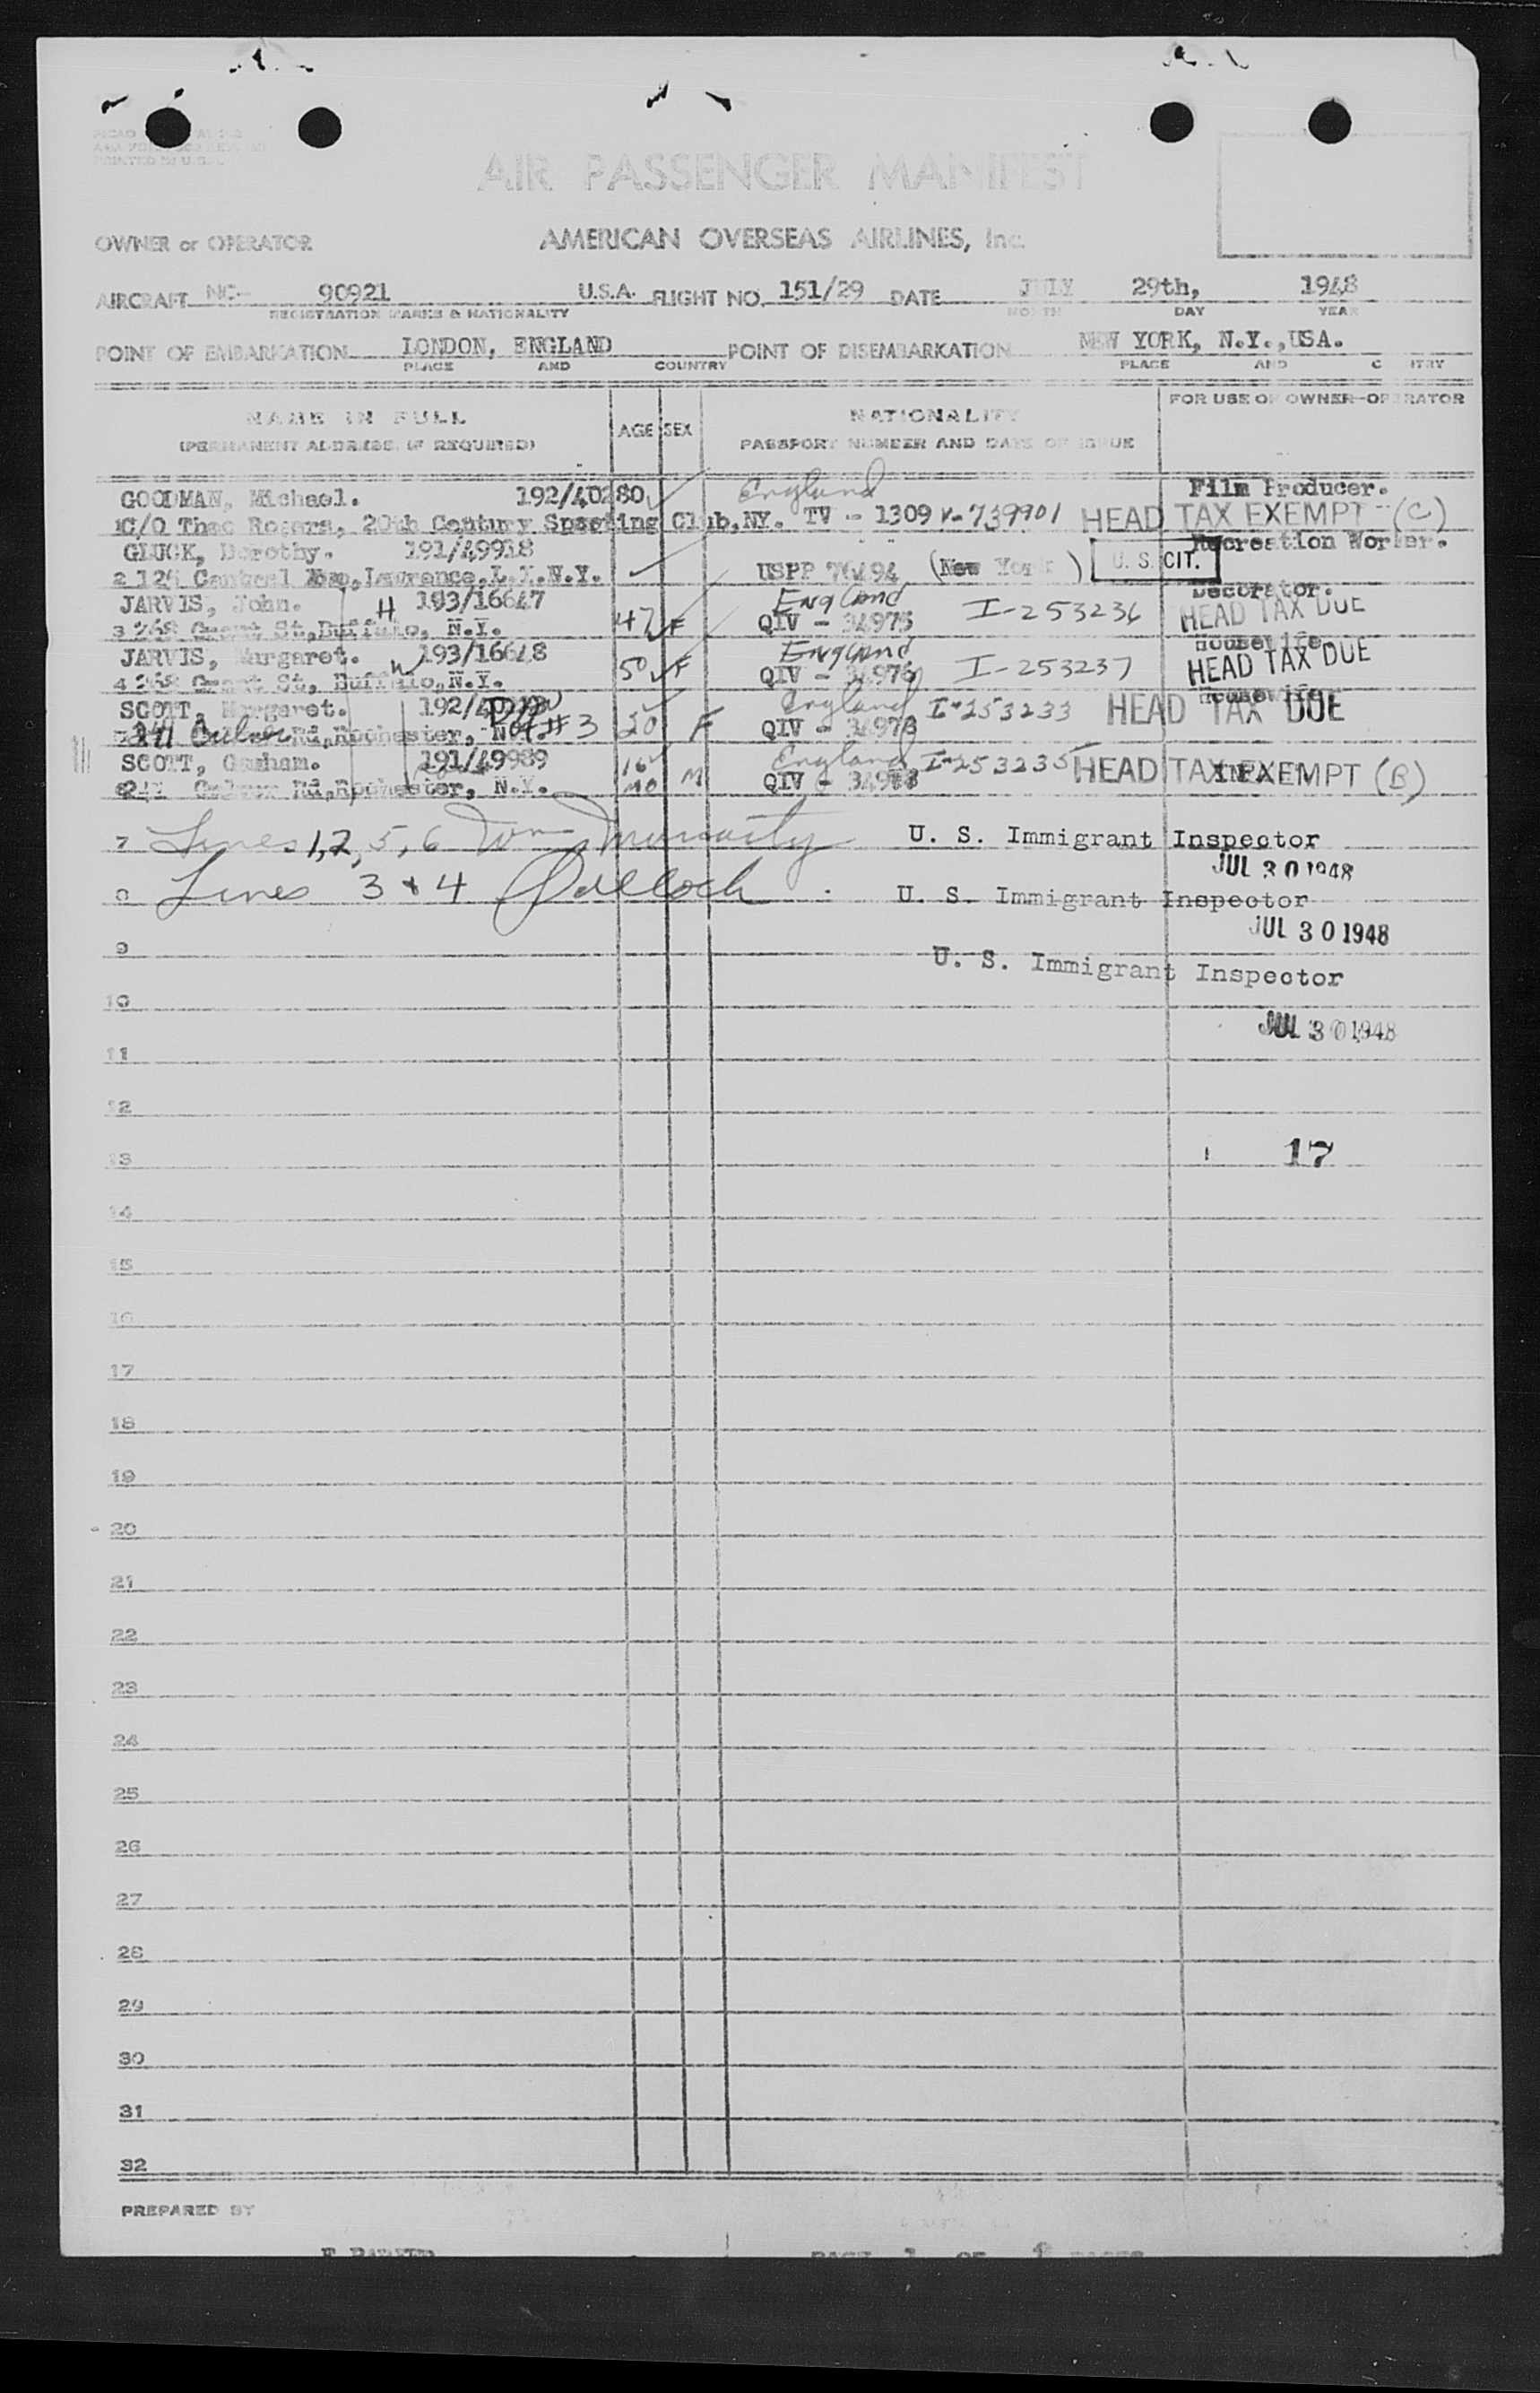 PRINTED IN U.S.A.
AIR PASSENGER MANIFEST
OWNER or OPERATOR AMERICAN OVERSEAS AIRLINES, Inc.
AIRCRAFT NC- 90921 U.S.A. FLIGHT NO. 151/29 DATE JULY 29th, 1948
REGISTRATION MARKS & NATIONALITY MONTH DAY YEAR
POINT OF EMBARKATION LONDON, ENGLAND POINT OF DISEMBARKATION NEW YORK, N.Y.,USA.
PLACE AND COUNTRY PLACE AND COUNTRY
NAME IN FULL AGE SEX NATIONALITY FOR USE OF OWNER-OPERATOR
(PERMANENT ADDRESS, IF REQUIRED) PASSPORT NUMBER AND DATE OF ISSUE
GOODMAN, Michael. 192/40280 England Film Producer.
1C/O Theo Rogers, 20th Century Sporting Club,NY. TV - 1309 V-739901 HEAD TAX EXEMPT (C)
GLUCK, Dorothy. 191/49918 Recreation Worker.
2 Lawrance,L.I.N.Y. USPP (New York) U. S. CIT.
JARVIS, John. H 193/16647 England Decorator.
3 St,Buffalo, N.Y. 47 F QIV - 34975 I-253236 HEAD TAX DUE
JARVIS, Margaret. W 193/16648 England Housewife.
4 St, Buffalo,N.Y. 50 F QIV - 34976 I-253237 HEAD TAX DUE
SCOTT, Margaret. England Housewife.
241 Culver Rd,Rochester, #3 50 F QIV - 34978 I-253233 HEAD TAX DUE
SCOTT, Graham. 191/49989 16 England I-253235 INFANT
6 241 Culver Rd,Rochester, N.Y. mo M QIV - HEAD TAX EXEMPT (B)
7 Lines 1,2,5,6 Wm Moriarity U. S. Immigrant Inspector
JUL 30 1948
8 Lines 3 & 4 U. S. Immigrant Inspector
JUL 30 1948
9
U. S. Immigrant Inspector
10
JUL 30 1948
11
12
13 17
14
15
16
17
18
19
20
21
22
23
24
25
26
27
28
29
30
31
32
PREPARED BY